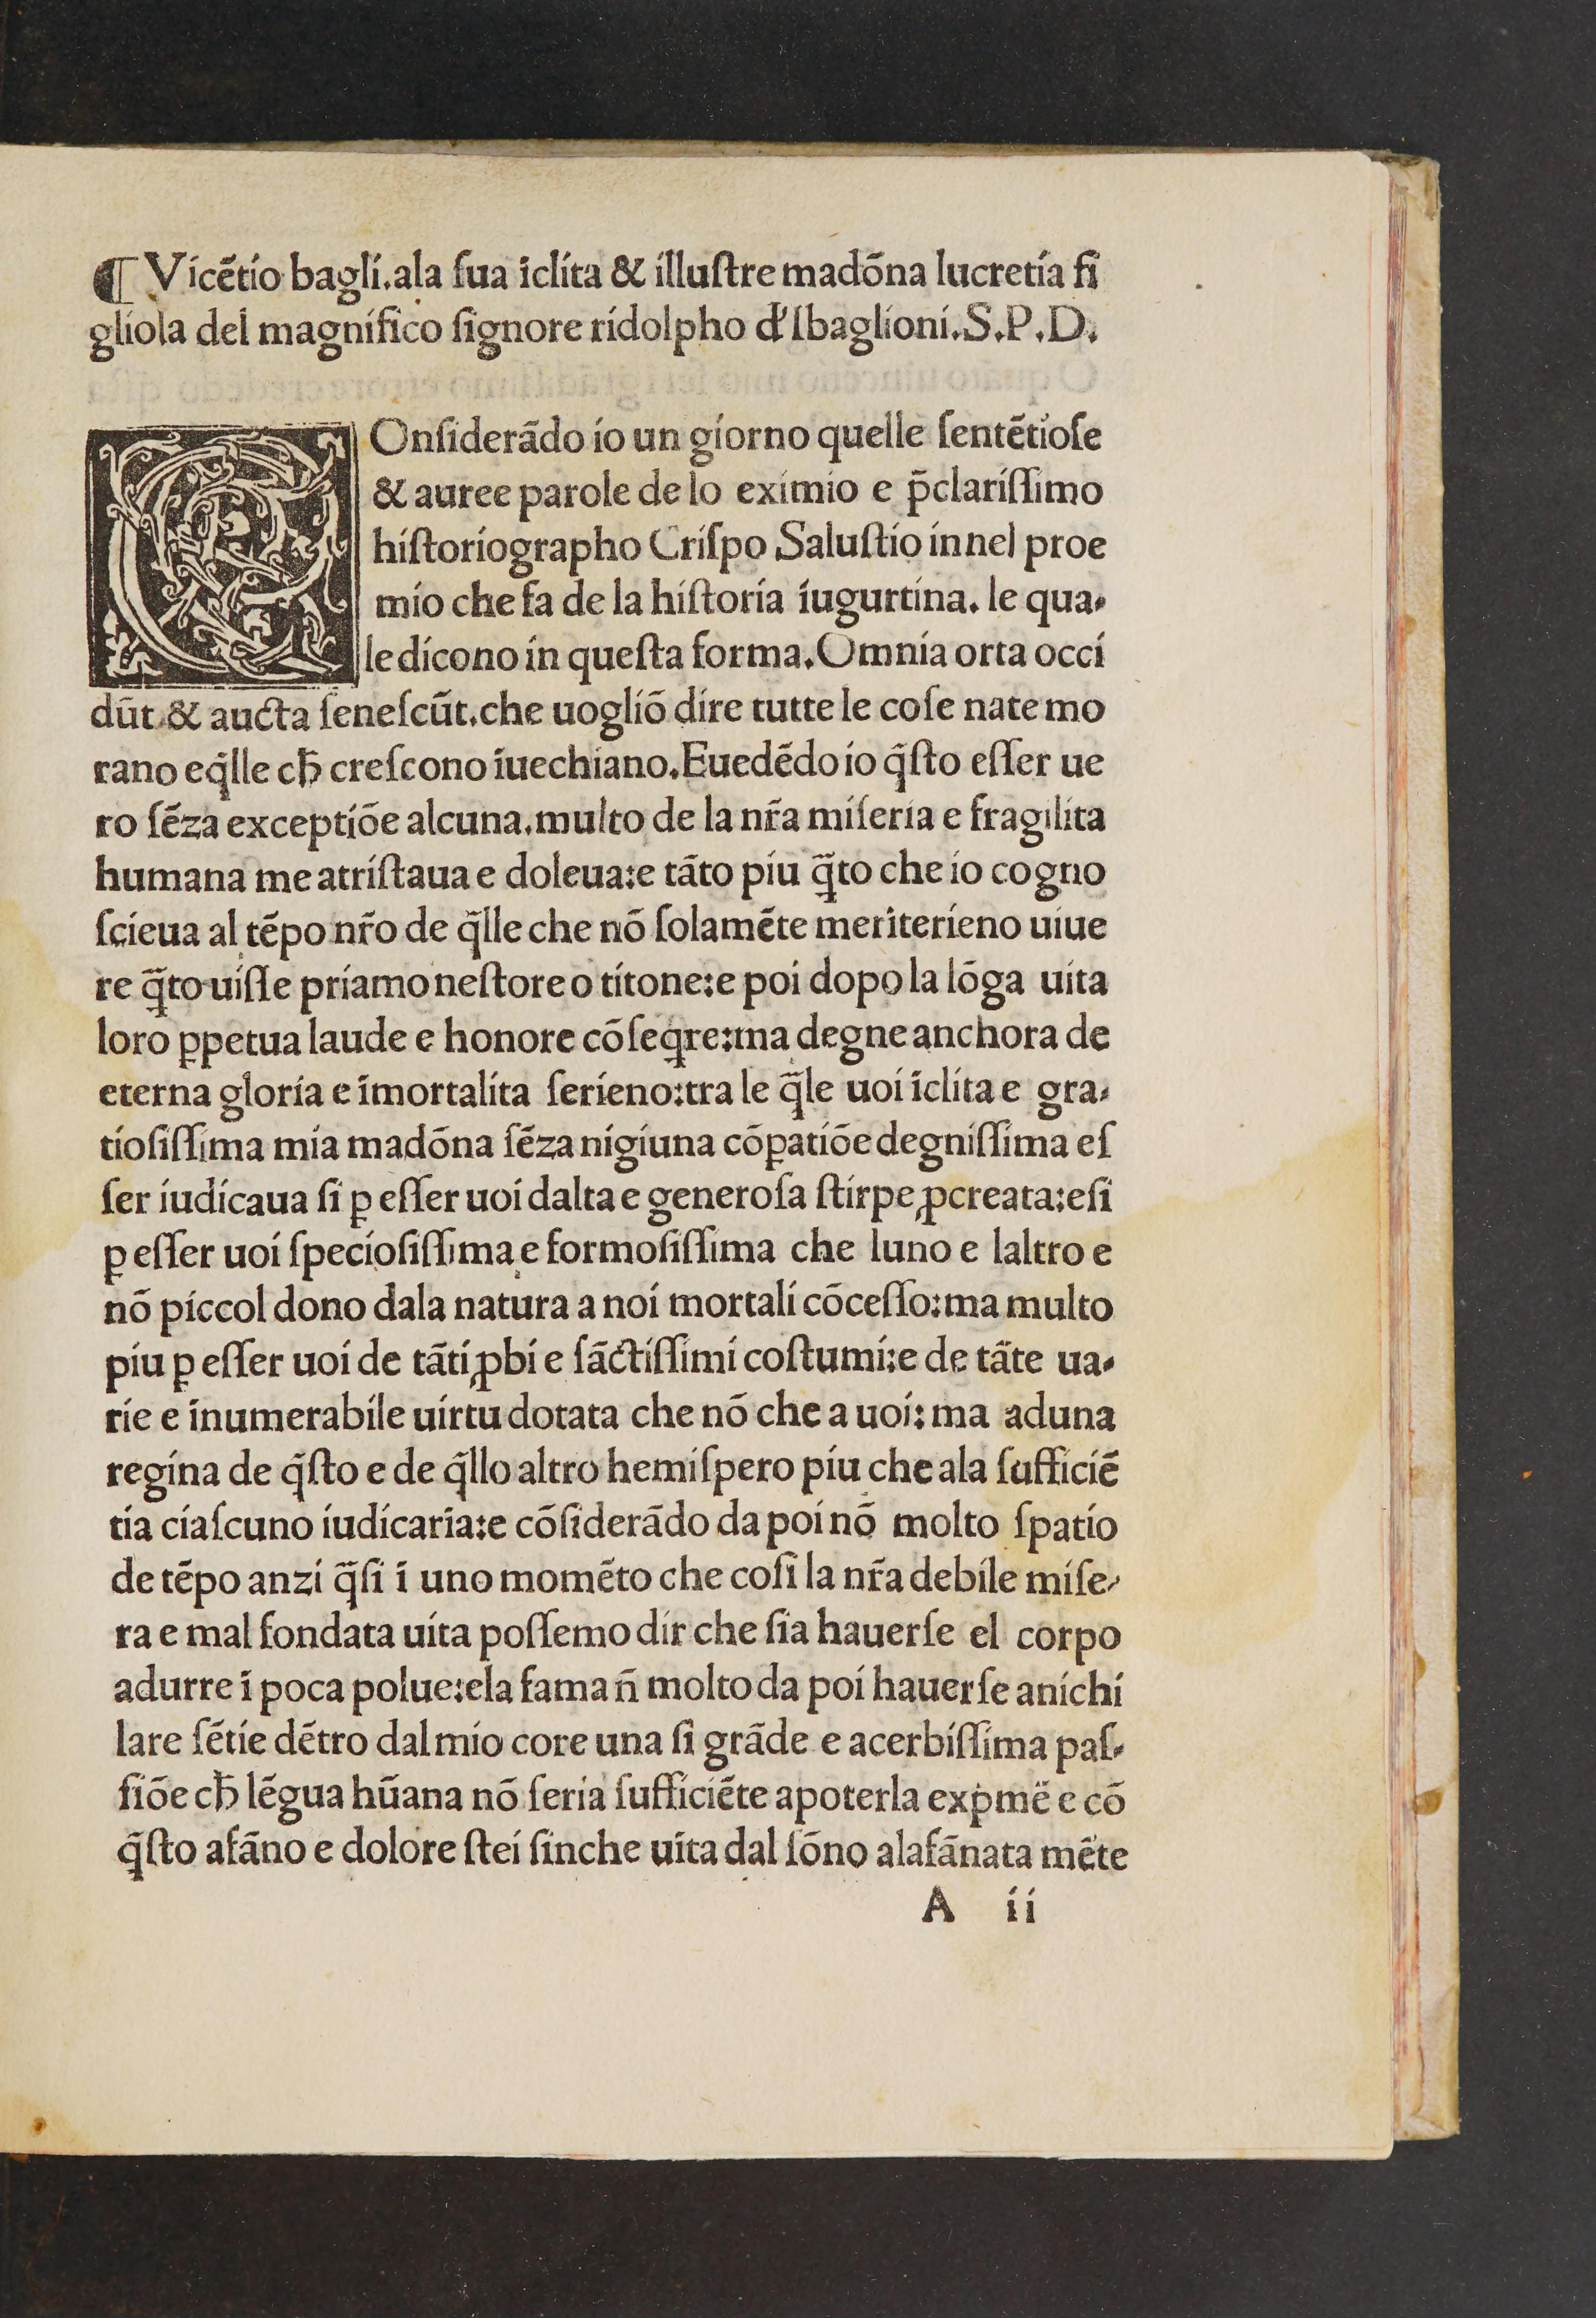 ¶ Vicētio bagli.ala ſua īclita & illuſtre madōna lucretia fi
gliola del magnifico ſignore ridolpho d'lbaglioni.S.P.D.
COnſiderādo io un giorno quelle ſentētioſe
& auree parole de lo eximio e p̄clariſſimo
hiſtoriographo Criſpo Saluſtio innel proe
mio che fa de la hiſtoria iugurtina. le qua-
le dicono in queſta forma.Omnia orta occi
dūt & aucta ſeneſcūt.che uogliō dire tutte le coſe nate mo
rano e q̄lle cħ creſcono īuechiano.Euedēdo io q̄ſto eſſer ue
ro ſēza exceptiōe alcuna.multo de la nr̄a miſeria e fragilita
humana me atriſtaua e doleua:e tāto piu q̄to che io cogno
ſcieua al tēpo nr̄o de q̄lle che nō ſolamēte meriterieno uiue
re q̄to uiſſe priamo neſtore o titone:e poi dopo la lōga uita
loro ꝑpetua laude e honore cōſeqre:ma degne anchora de
eterna gloria e īmortalita ſerieno:tra le q̄le uoi īclita e gra-
tioſiſſima mia madōna ſēza nigiuna cōꝑatiōe degniſſima eſ
ſer iudicaua ſi ꝑ eſſer uoi dalta e generoſa ſtirpe ꝓcreata:eſi
ꝑ eſſer uoi ſpecioſiſſima e formoſiſſima che luno e laltro e
nō piccol dono dala natura a noi mortali cōceſſo:ma multo
piu ꝑ eſſer uoi de tāti ꝓbi e ſāctiſſimi coſtumi:e de tāte ua-
rie e īnumerabile uirtu dotata che nō che a uoi:ma aduna
regina de q̄ſto e de q̄llo altro hemiſpero piu che ala ſufficiē
tia ciaſcuno iudicaria:e cōſiderādo da poi nō molto ſpatio
de tēpo anzi q̄ſi ī uno momēto che coſi la nr̄a debile miſe-
ra e mal fondata uita poſſemo dir che ſia hauerſe el corpo
adurre ī poca polue:ela fama n̄ molto da poi hauerſe anichi
lare ſētie dētro dal mio core una ſi grāde e acerbiſſima paſ-
ſiōe cħ lēgua hūana nō ſeria ſufficiēte apoterla expͥmē e cō
q̄ſto afāno e dolore ſtei ſinche uīta dal ſōno alafānata mēte
A ii